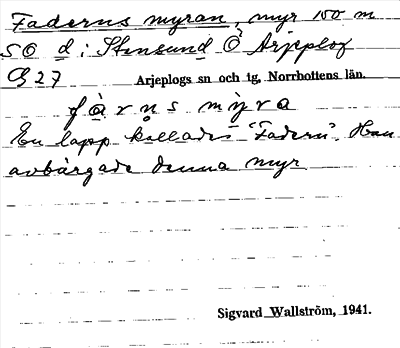 Faderns myran, myr 100 m
SO d i Stensund Ö Arjeplog
G 27 Arjeplogs sn och tg, Norrbottens län.
fàr̥n̥s mỳra
En lapp kallades "Fadern". Han
avbärgade denna myr
Sigvard Wallström, 1941.